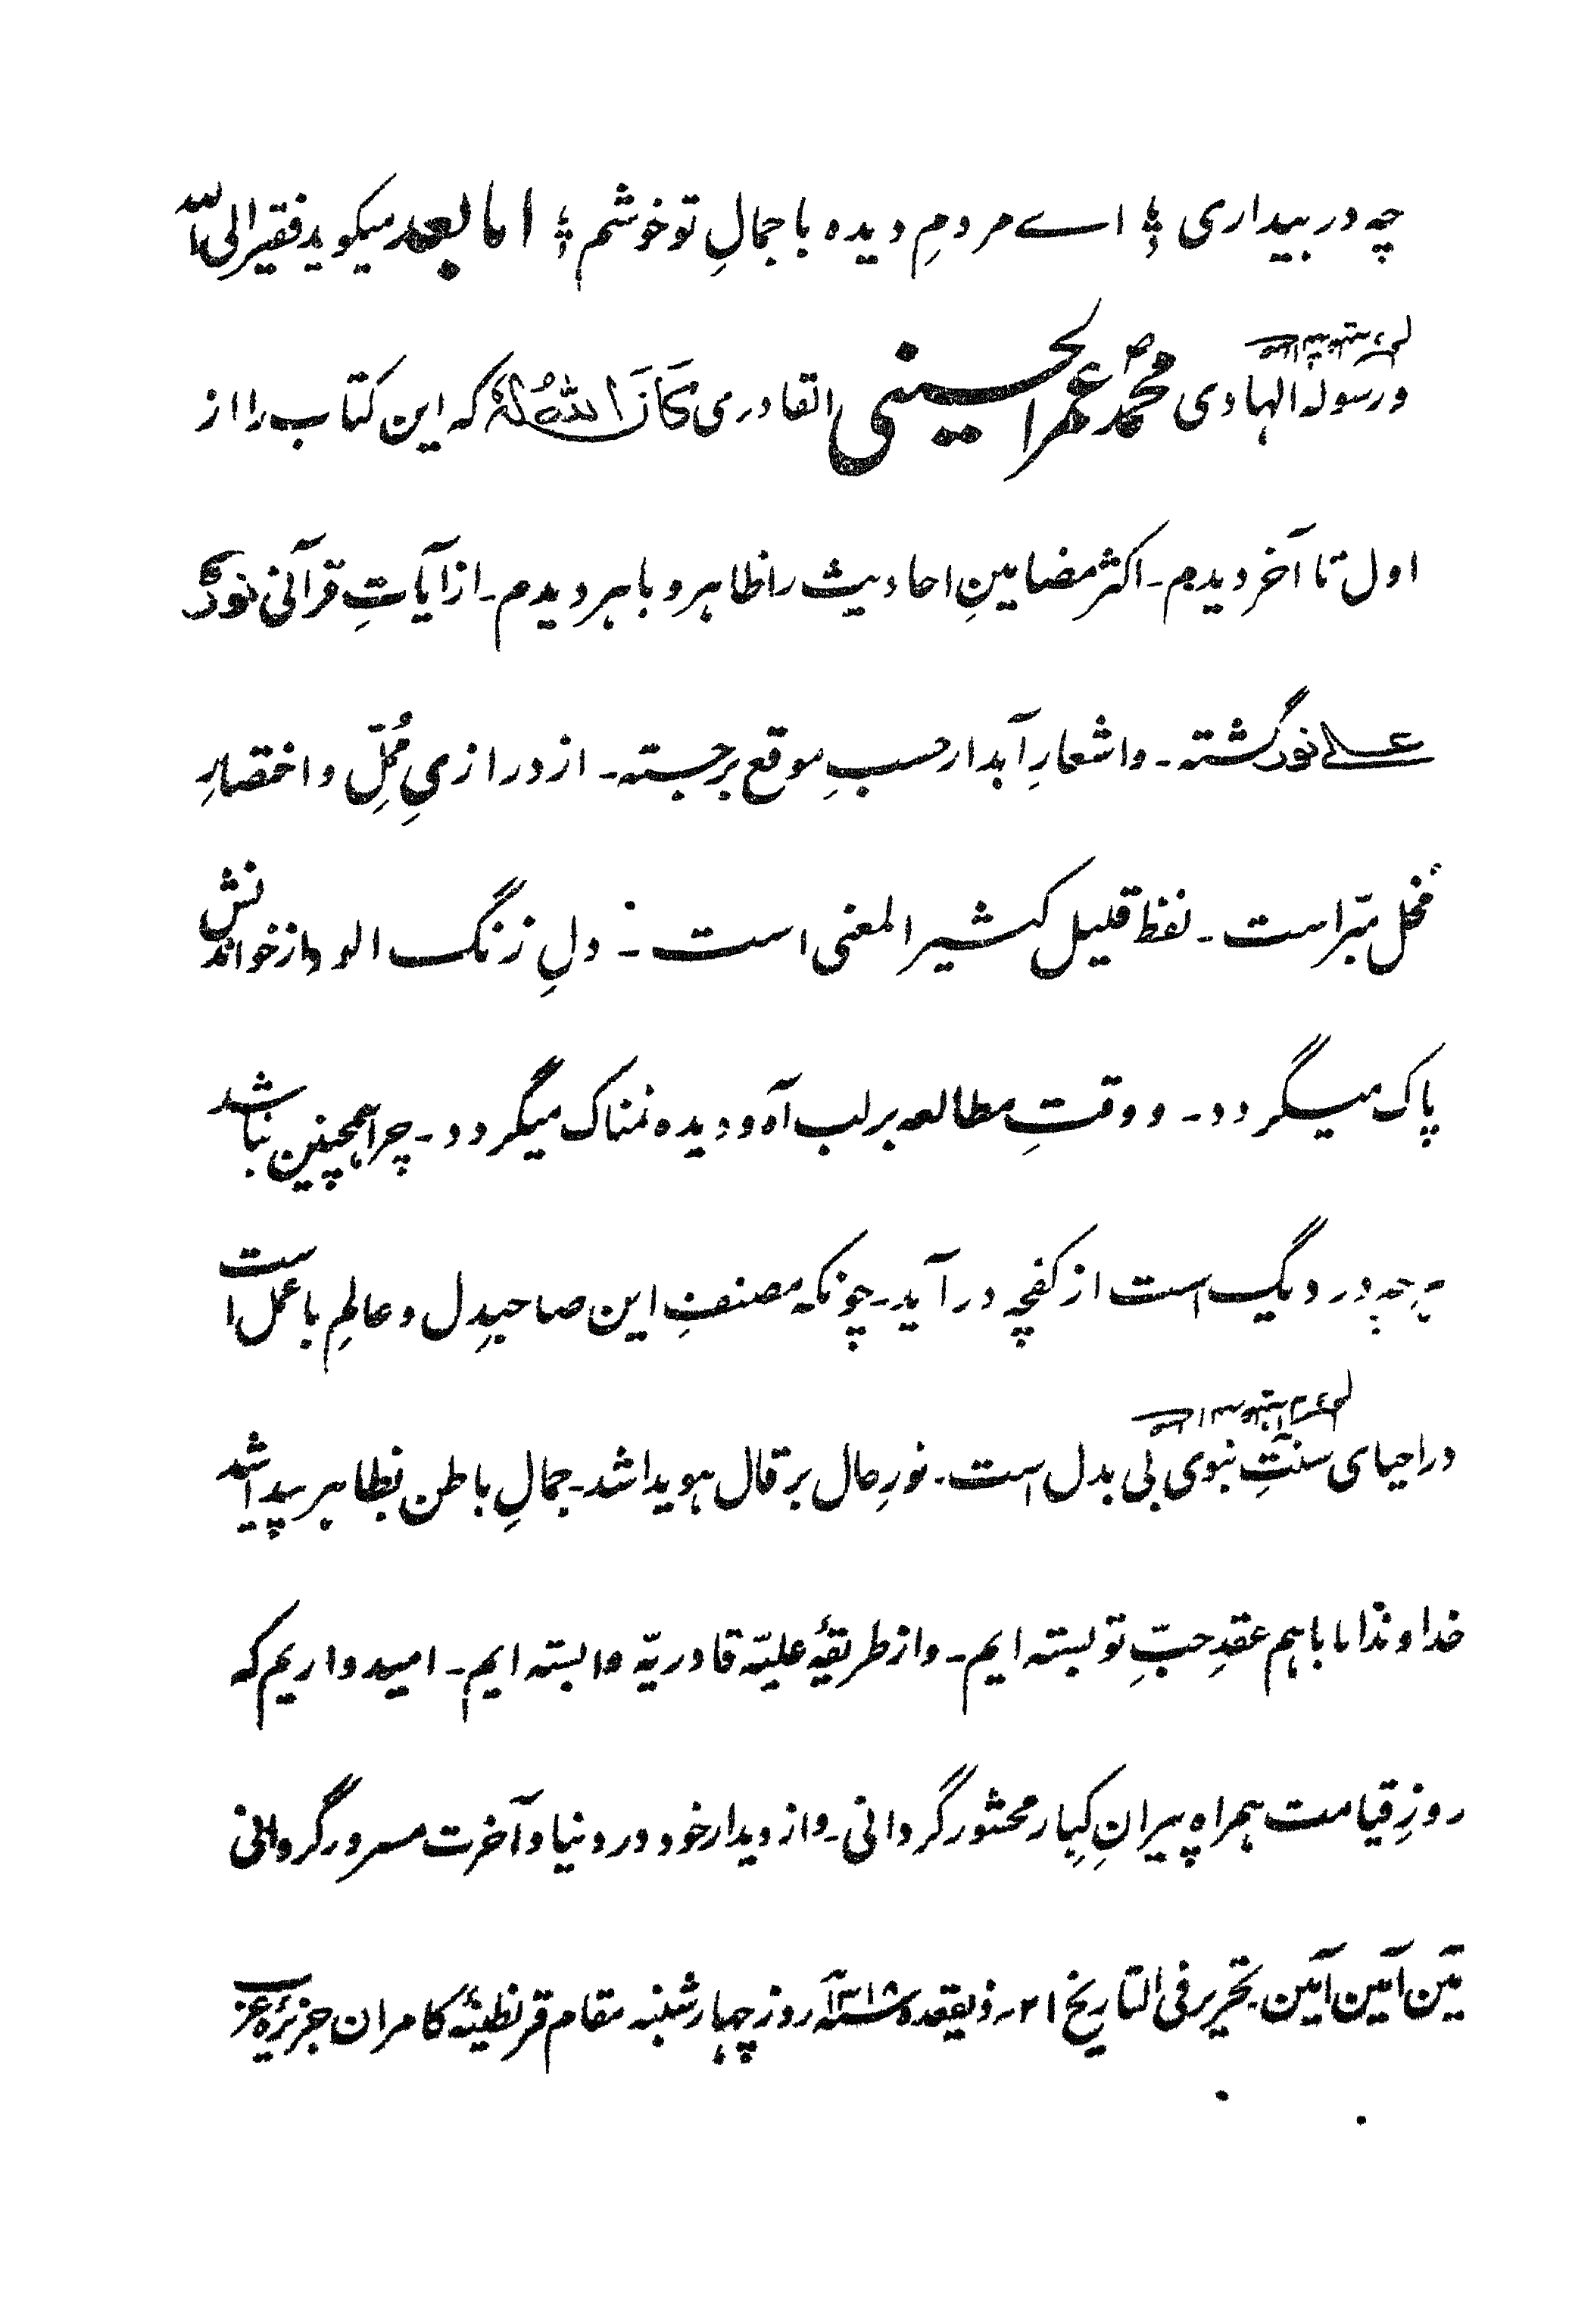 چه در بیداری ؛ اے مردمِ دیده با جمالِ تو خوشم ؛ اما بعد میگوید فقیر الی الله
صلی الله علیه وسلم
و رسوله الهادی محمد عمر الحسینی القادری کَانَ اللهُ لَهٗ که این کتاب را از
اول تا آخر دیدم ـ اکثر مضامینِ احادیث را ظاهر و باهر دیدم ـ از آیاتِ قرآنی نورٌ
علے نور گشته ـ و اشعارِ آبدار حسبِ موقع برجسته ـ از درازیِ مُمِلّ و اختصارِ
مُخل مبّرا است ـ لفظ قلیل کثیر المعنی است ـ دلِ زنگ الود از خواندنش
پاک میگردد ـ و وقتِ مطالعه بر لب آه و دیده نمناک میگردد ـ چرا همچنین نباشد
هرچه در دیگ است از کفچه در آید ـ چونکه مصنفِ این صاحبدِل و عالمِ باعمل است
صلی الله علیه وسلم
در احیای سنتِ نبوی بی بدل است ـ نورِ حال بر قال هویدا شد ـ جمالِ باطن بظاهر پیدا شد
خداوندا ما باهم عقدِ حبِّ تو بسته ایم ـ و از طریقهٔ علیّه قادریّه وابسته ایم ـ امیدواریم که
روزِ قیامت همراهِ پیرانِ کِبار محشور گردانی ـ و از دیدار خود در دنیا و آخرت مسرور گردانی
آمین آمین آمین ـ تحریر فی التاریخ ۲۱ ـ ذیقعده ۱۳۱۸ روز چهارشنبه مقام قرنطینهٔ کامران جزیرهٔ عرب